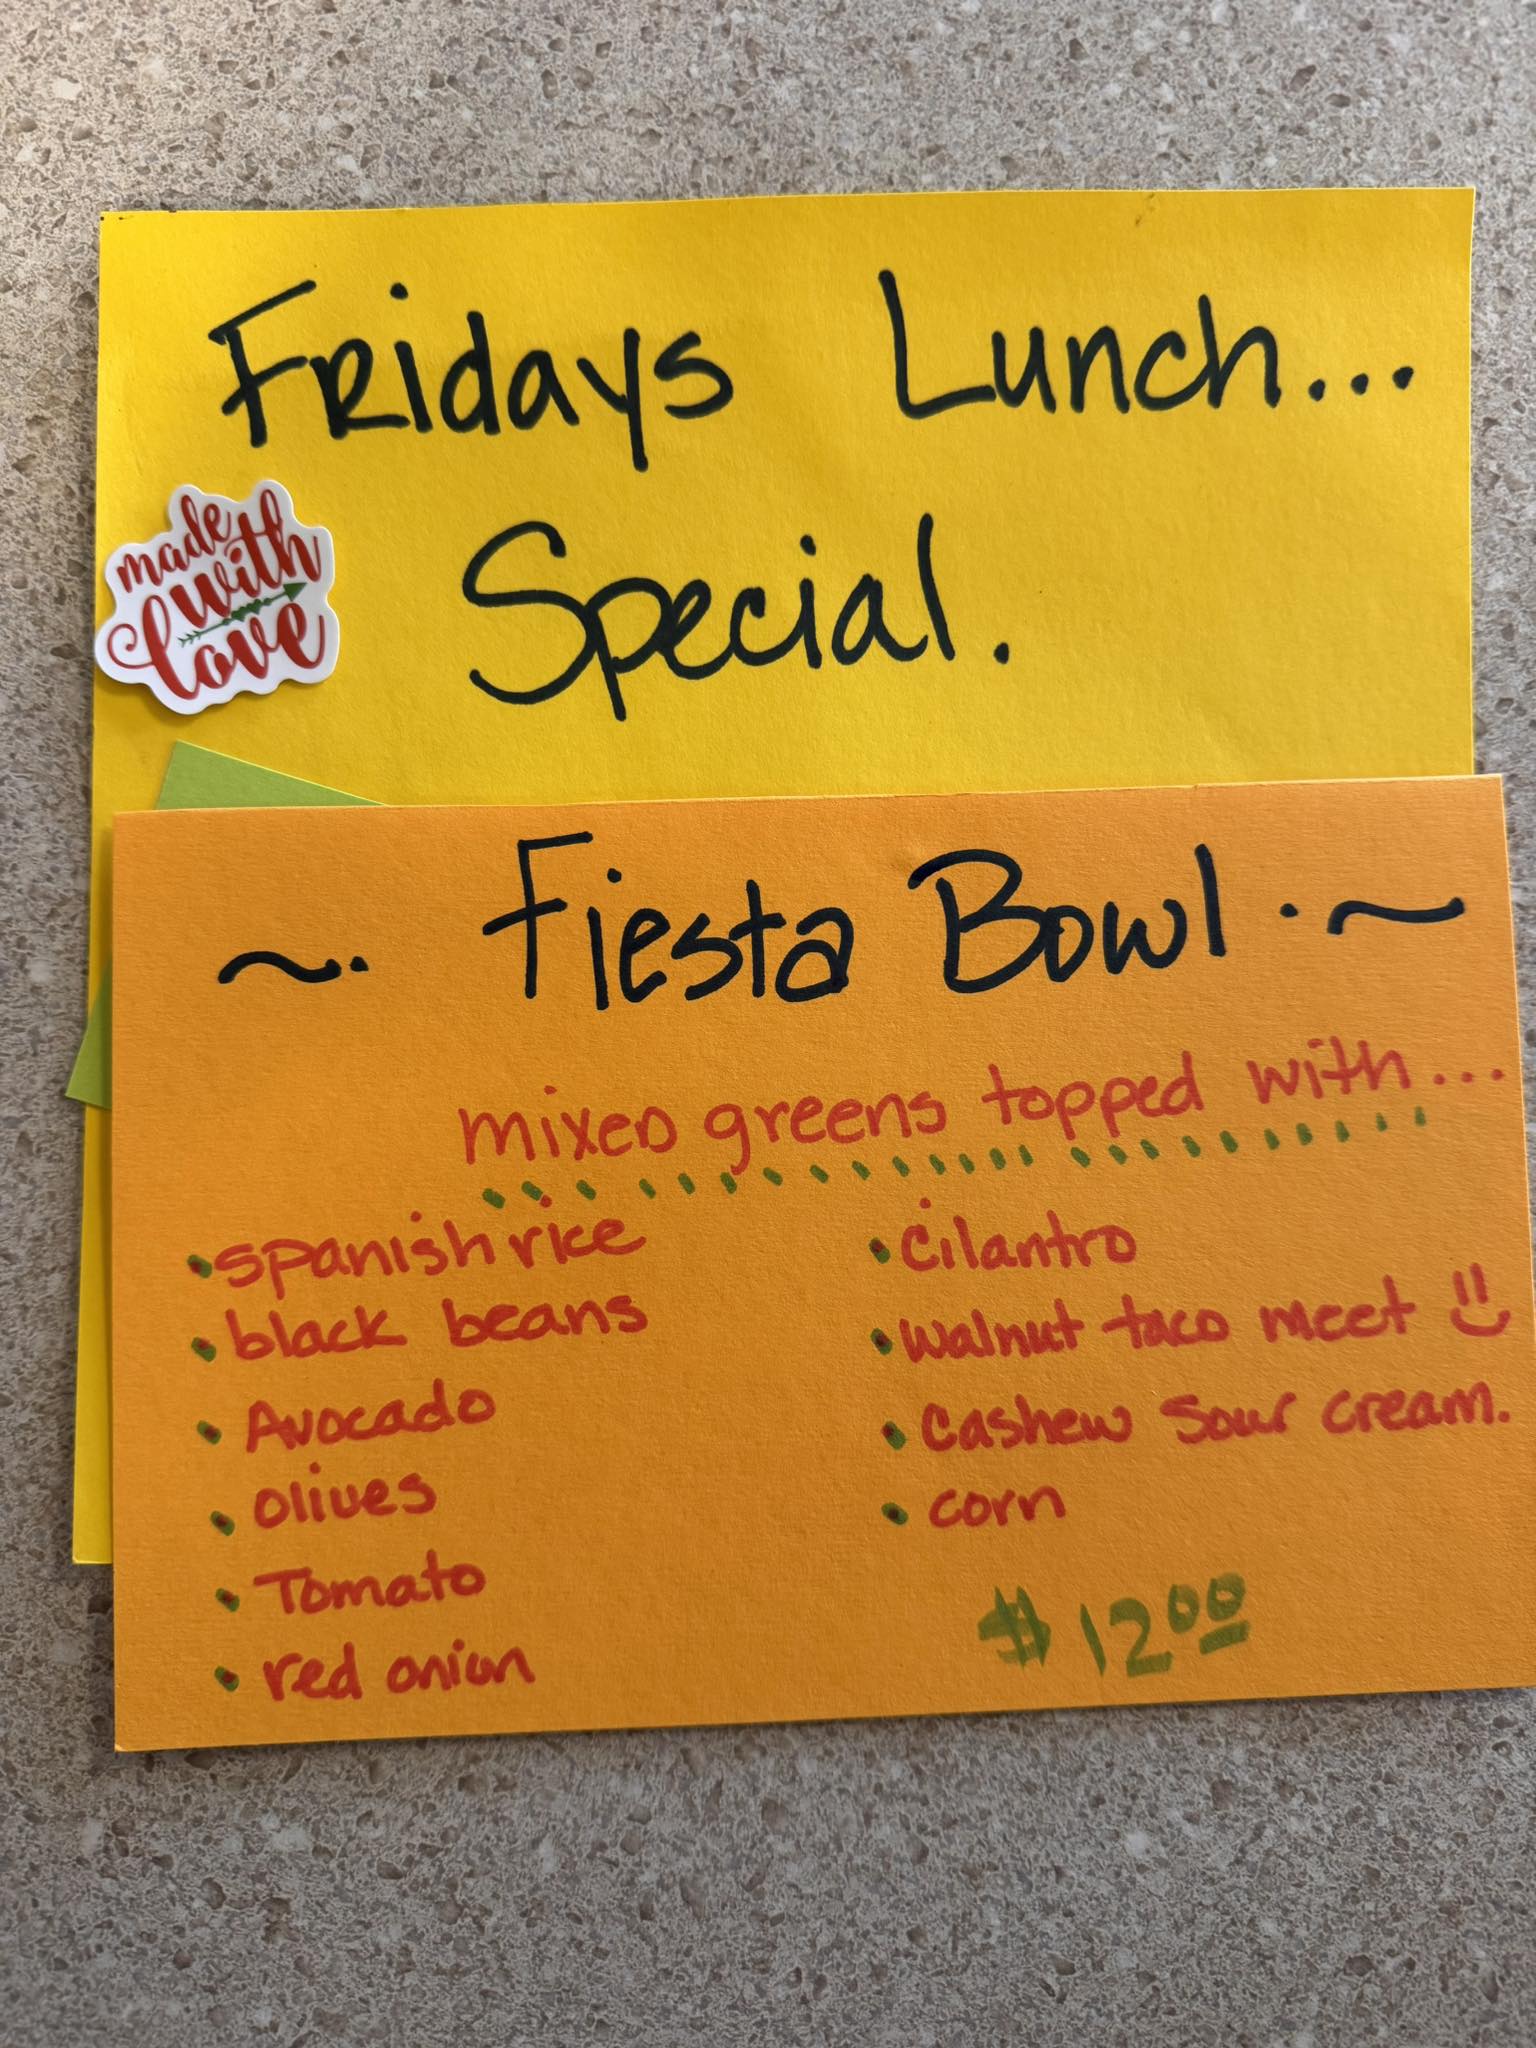 Fridays Lunch...
Special.
made
with
love
~. Fiesta Bowl .~
mixed greens topped with...
• spanish rice
• black beans
• Avocado
• olives
• Tomato
• red onion
• cilantro
• walnut taco meet
• Cashew Sour cream.
• corn
$12.00